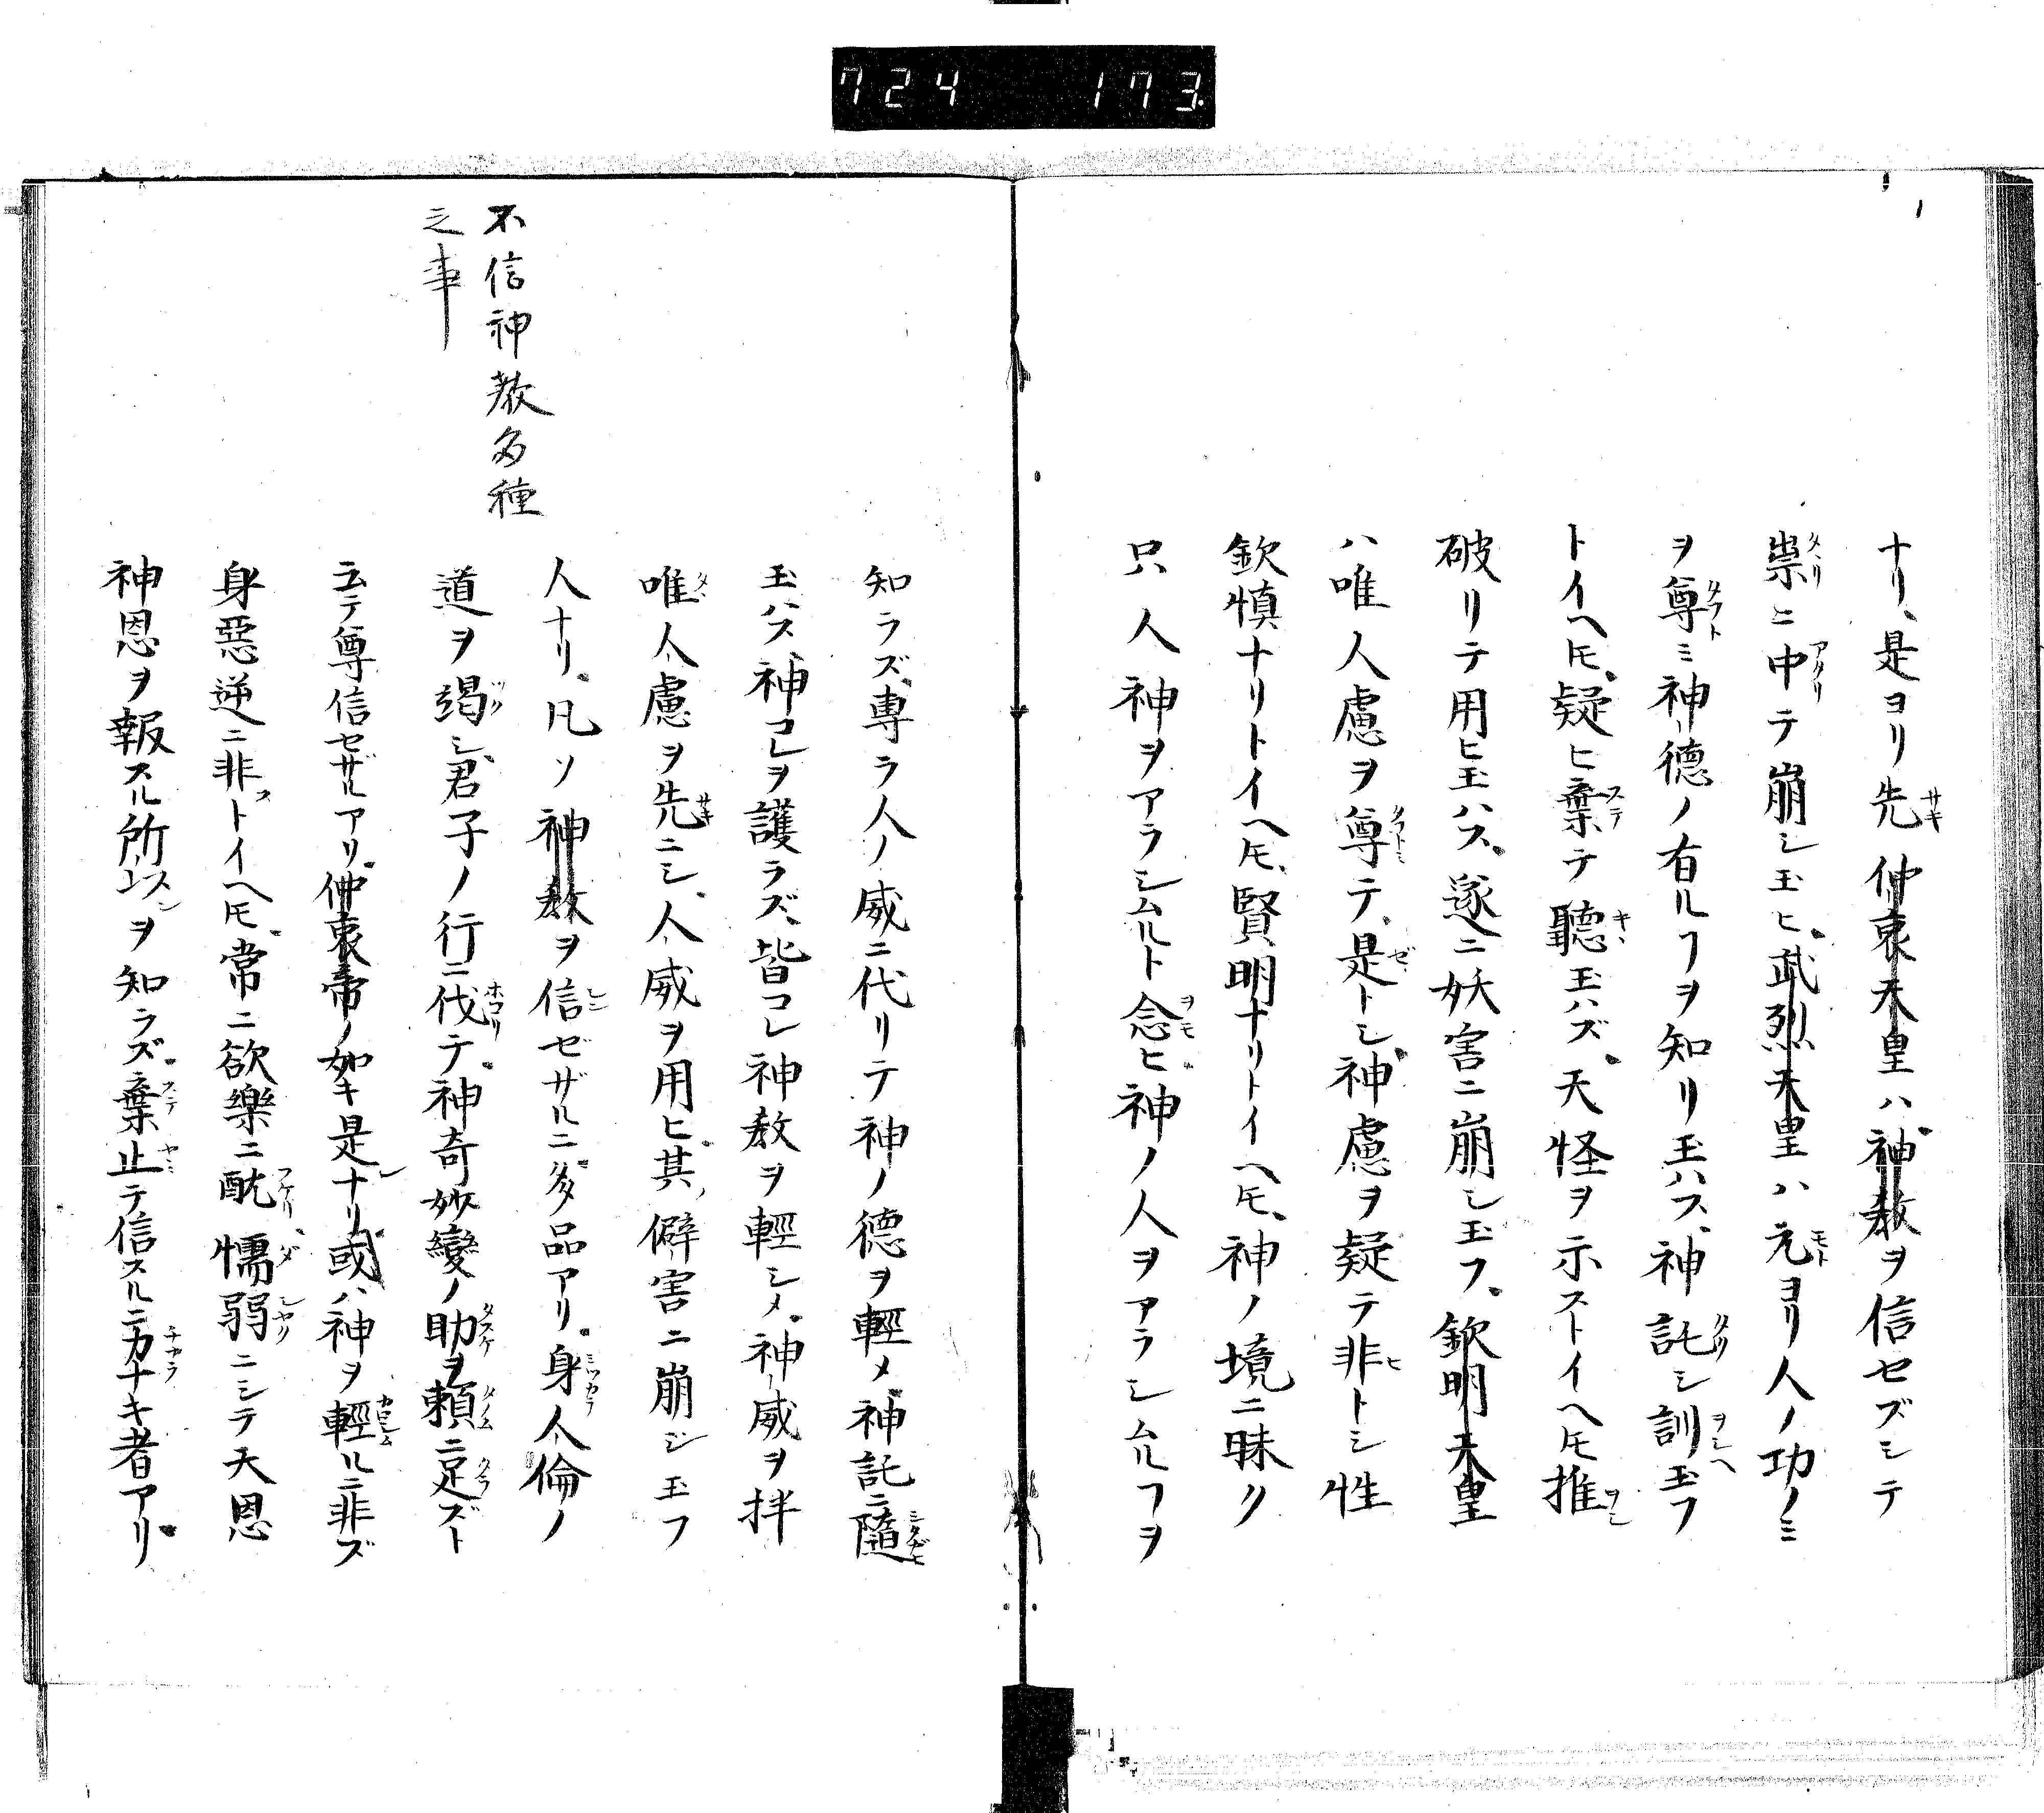 724 173
ナリ、是ヨリ先仲哀天皇ハ神敎ヲ信セズシテ
祟ニ中テ崩シ玉ヒ、武烈天皇ハ元ヨリ人ノ功ノミ
ヲ尊ミ神德ノ有ルヿヲ知リ玉ハス、神託シ訓玉フ
トイヘ𪜈、疑ヒ棄テ聽玉ハズ、天怪ヲ示ストイヘ𪜈推
破リテ用ヒ玉ハス、遂ニ妖害ニ崩シ玉フ、欽明天皇
ハ唯人慮ヲ尊テ、是トシ神慮ヲ疑テ非トシ性
欽慎ナリトイヘ𪜈、賢明ナリトイヘ𪜈、神ノ境ニ昧ク
只人神ヲアラシムルト念ヒ神ノ人ヲアラシムルヿヲ
知ラズ、專ラ人ノ威ニ代リテ神ノ德ヲ輕メ神託ニ隨
玉ハス、神コレヲ護ラズ、皆コレ神敎ヲ輕シメ、神威ヲ拌
唯人慮ヲ先ニシ、人威ヲ用ヒ、其ノ僻害ニ崩ジ玉フ
人ナリ、凡ソ神敎ヲ信ゼザルニ、多品アリ、身人倫ノ
不信神敎多種
之事
道ヲ竭シ、君子ノ行ニ伐テ、神奇妙變ノ助ヲ頼ニ足ズト
云テ尊信セザルアリ、仲哀帝ノ如キ是ナリ、或ハ神ヲ輕ルニ非ズ
身惡逆ニ非ストイヘ𪜈、常ニ欲樂ニ耽リ、懦弱ニシテ天恩
神恩ヲ報スル所ヲ知ラズ、棄止テ信スルニ力ナキ者アリ、